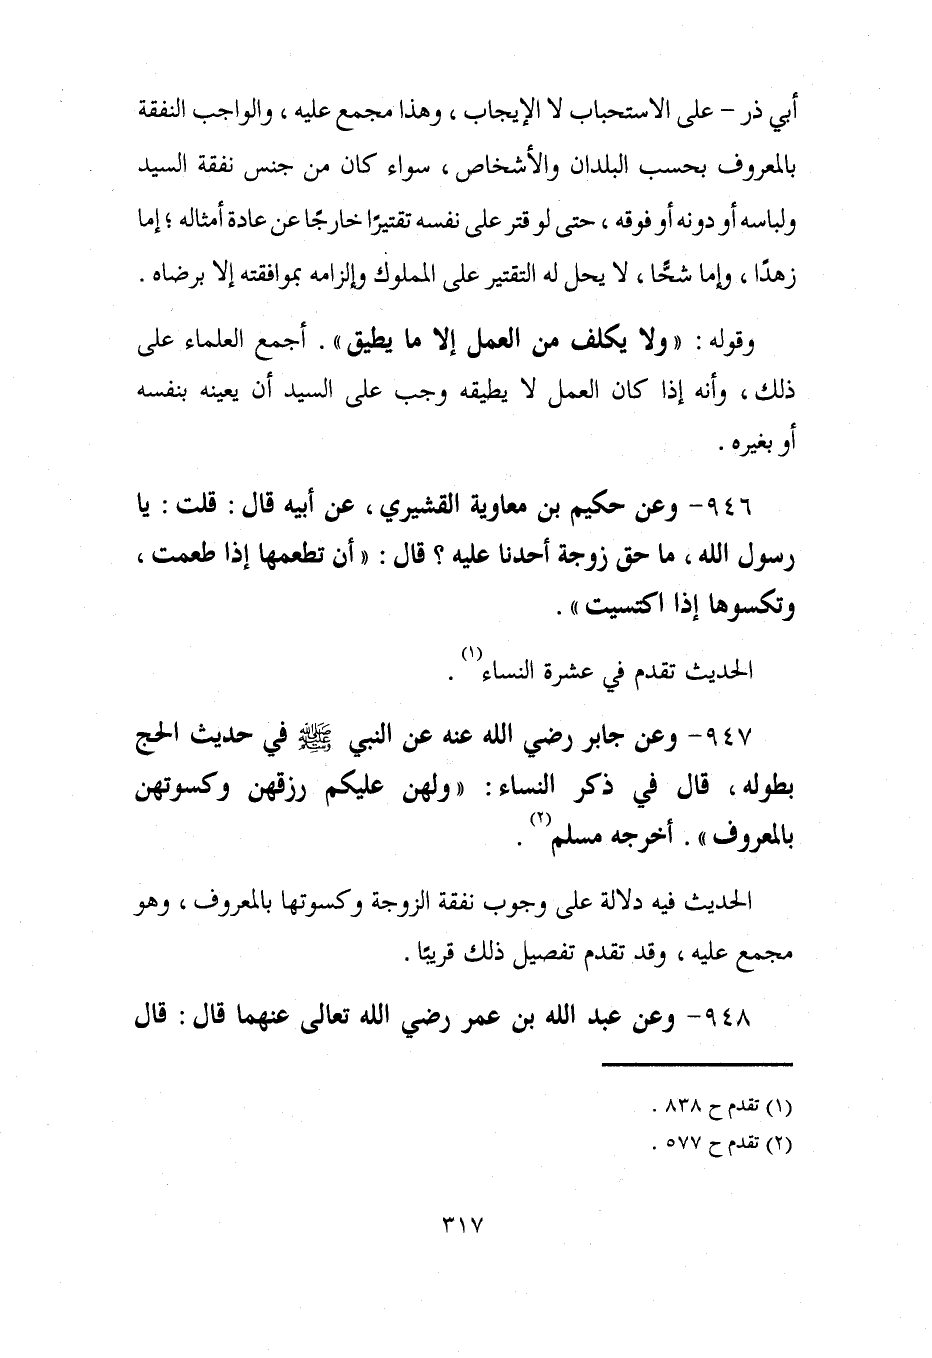 أبي ذر – على الاستحباب لا الإيجاب ، وهذا مجمع عليه ، والواجب النفقة
بالمعروف بحسب البلدان والأشخاص ، سواء كان من جنس نفقة السيد
ولباسه أو دونه أو فوقه ، حتى لو قتر على نفسه تقتيرًا خارجًا عن عادة أمثاله ؛ إما
زهدًا ، وإما شحًّا ، لا يحل له التقتير على المملوك وإلزامه بموافقته إلا برضاه .
وقوله : « ولا يكلف من العمل إلا ما يطيق » . أجمع العلماء على
ذلك ، وأنه إذا كان العمل لا يطيقه وجب على السيد أن يعينه بنفسه
أو بغيره .
٩٤٦- وعن حكيم بن معاوية القشيري ، عن أبيه قال : قلت : يا
رسول الله ، ما حق زوجة أحدنا عليه ؟ قال : « أن تطعمها إذا طعمت ،
وتكسوها إذا اكتسيت » .
الحديث تقدم في عشرة النساء(١) .
٩٤٧- وعن جابر رضي الله عنه عن النبي ﷺ في حديث الحج
بطوله ، قال في ذكر النساء : « ولهن عليكم رزقهن وكسوتهن
بالمعروف » . أخرجه مسلم(٢) .
الحديث فيه دلالة على وجوب نفقة الزوجة وكسوتها بالمعروف ، وهو
مجمع عليه ، وقد تقدم تفصيل ذلك قريبًا .
٩٤٨- وعن عبد الله بن عمر رضي الله تعالى عنهما قال : قال
(١) تقدم ح ٨٣٨ .
(٢) تقدم ح ٥٧٧ .
٣١٧